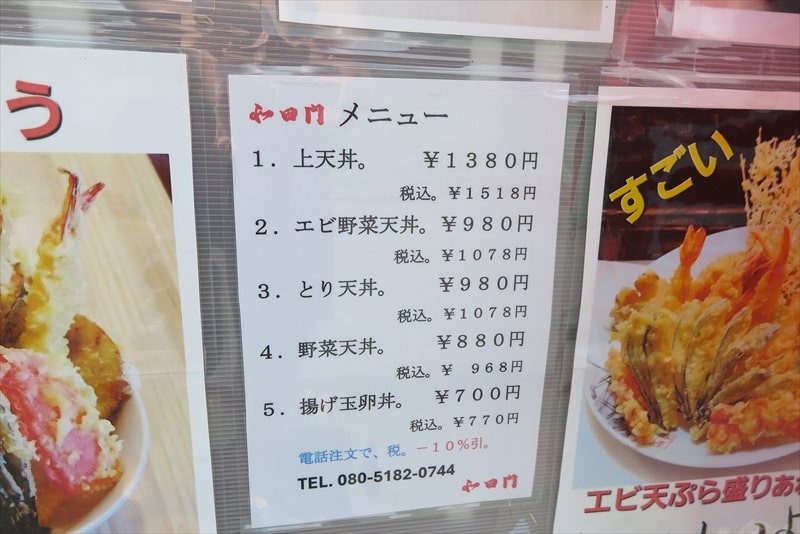 う
和田門 メニュー
1．上天丼。 ￥1380円
税込。￥1518円
2．エビ野菜天丼。￥980円
税込。￥1078円
3．とり天丼。 ￥980円
税込。￥1078円
4．野菜天丼。 ￥880円
税込。￥ 968円
5．揚げ玉卵丼。￥700円
税込。￥770円
電話注文で、税。－10％引。
TEL. 080-5182-0744
和田門
すごい
エビ天ぷら盛りあわ